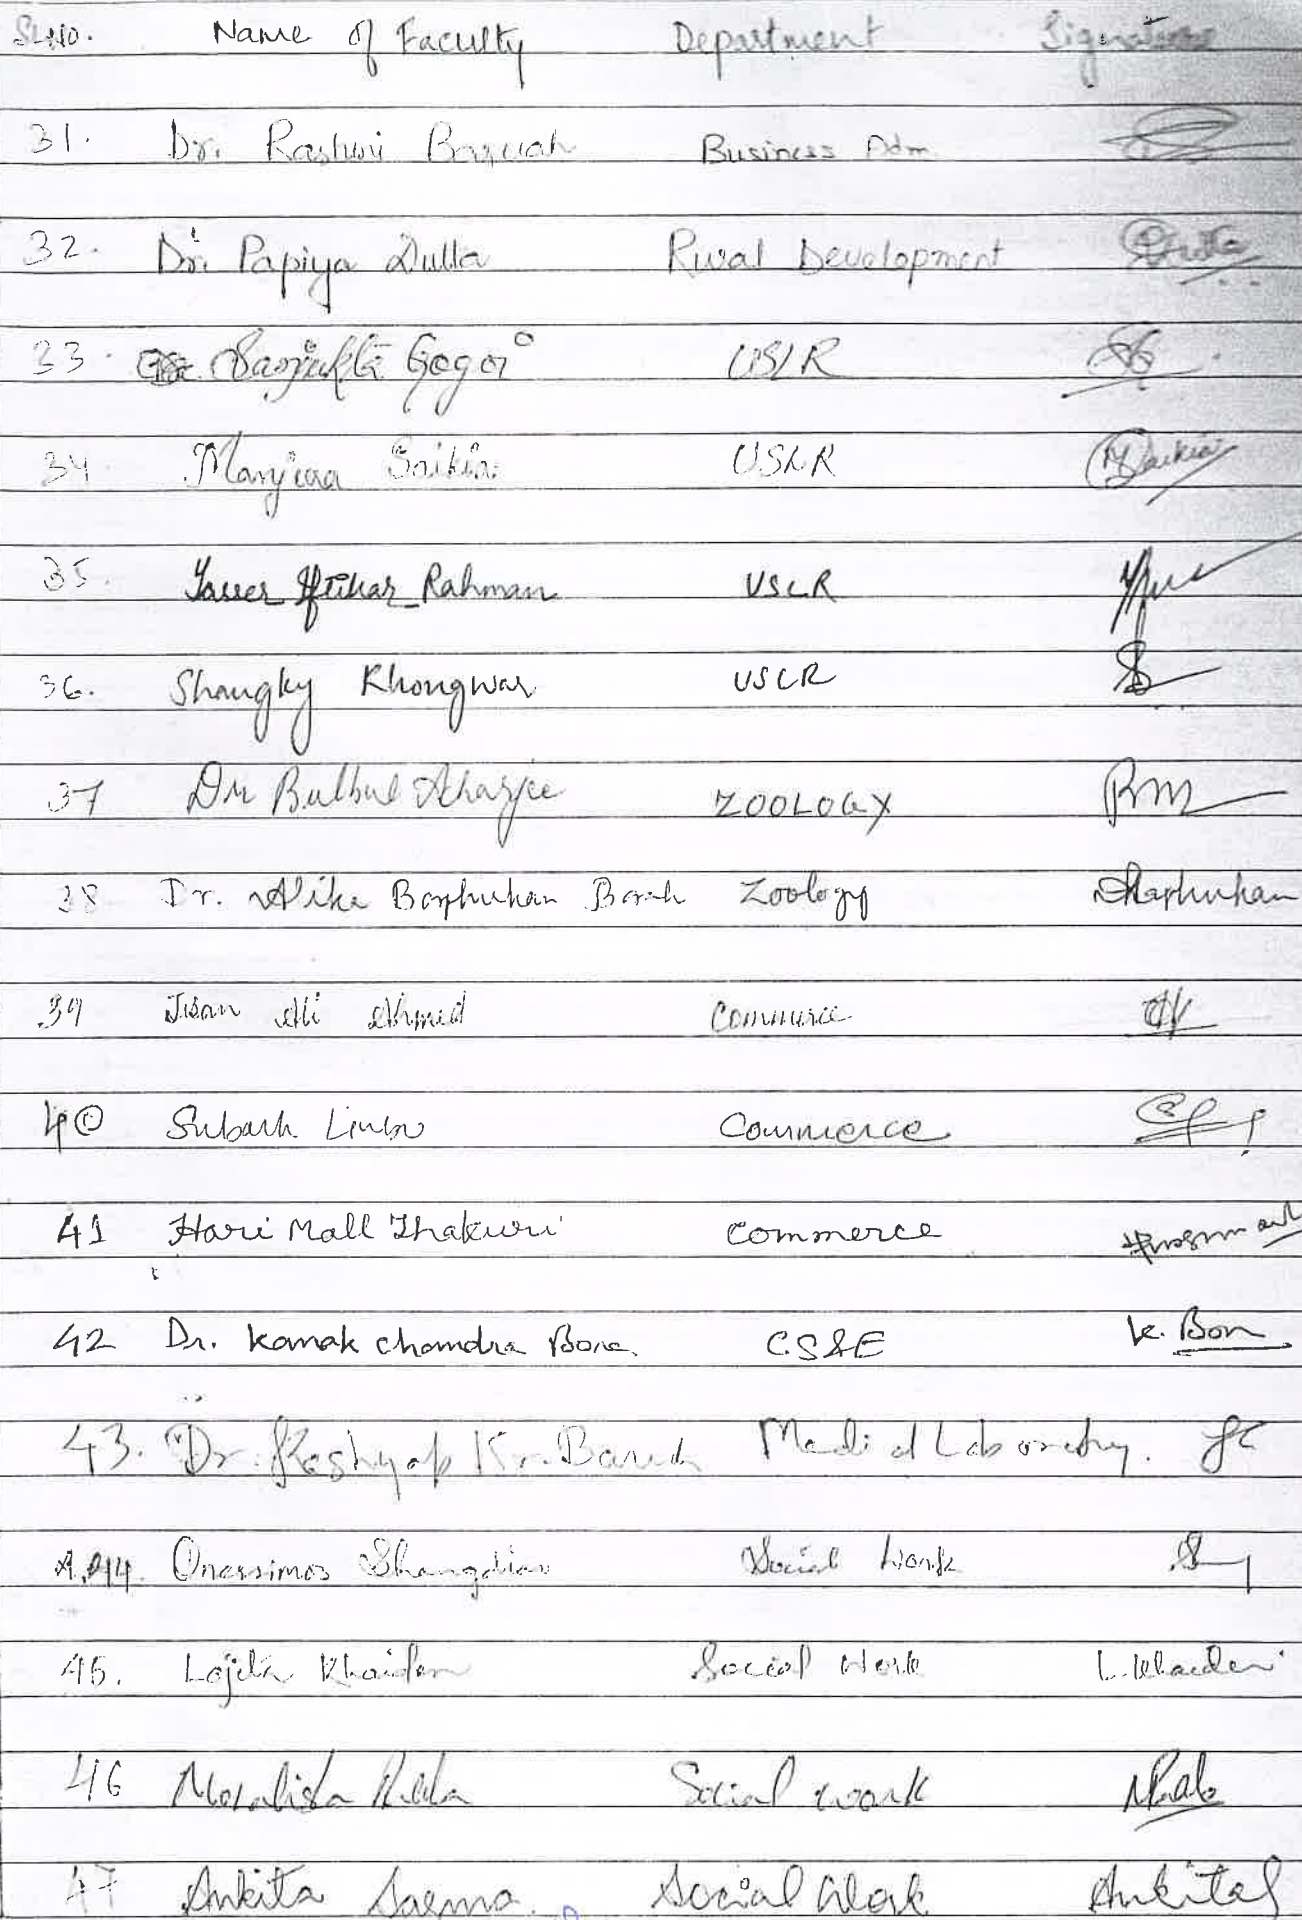 Sl. No. Name of Faculty Department Signature
31. Dr. Rashmi Baruah Business Adm.
32. Dr. Papiya Dutta Rural Development Dutta
33. Sanjukta Gogoi USLR
34 Manjima Saikia USLR MSaikia
35. Yasser Iftikar Rahman USLR
36. Shangky Khongwar USLR
37 Dr Bulbul Acharjee ZOOLOGY
38 Dr. Alika Borphukan Borah Zoology
39 Isan Ali Ahmed Commerce
40 Subash Limbu Commerce
41 Hari Mall Thakuri Commerce
42 Dr. Kanak Chandra Bora. CS&E K. Bora
43. Dr. Kashyap Kr. Baruah Medical Laboratory.
44. Onessimos Shangdiar Social Work
45. Lajita Khaidem Social Work L. Khaidem
46 Monalisha Social work
47 Ankita Sarma. Social Work AnkitaS